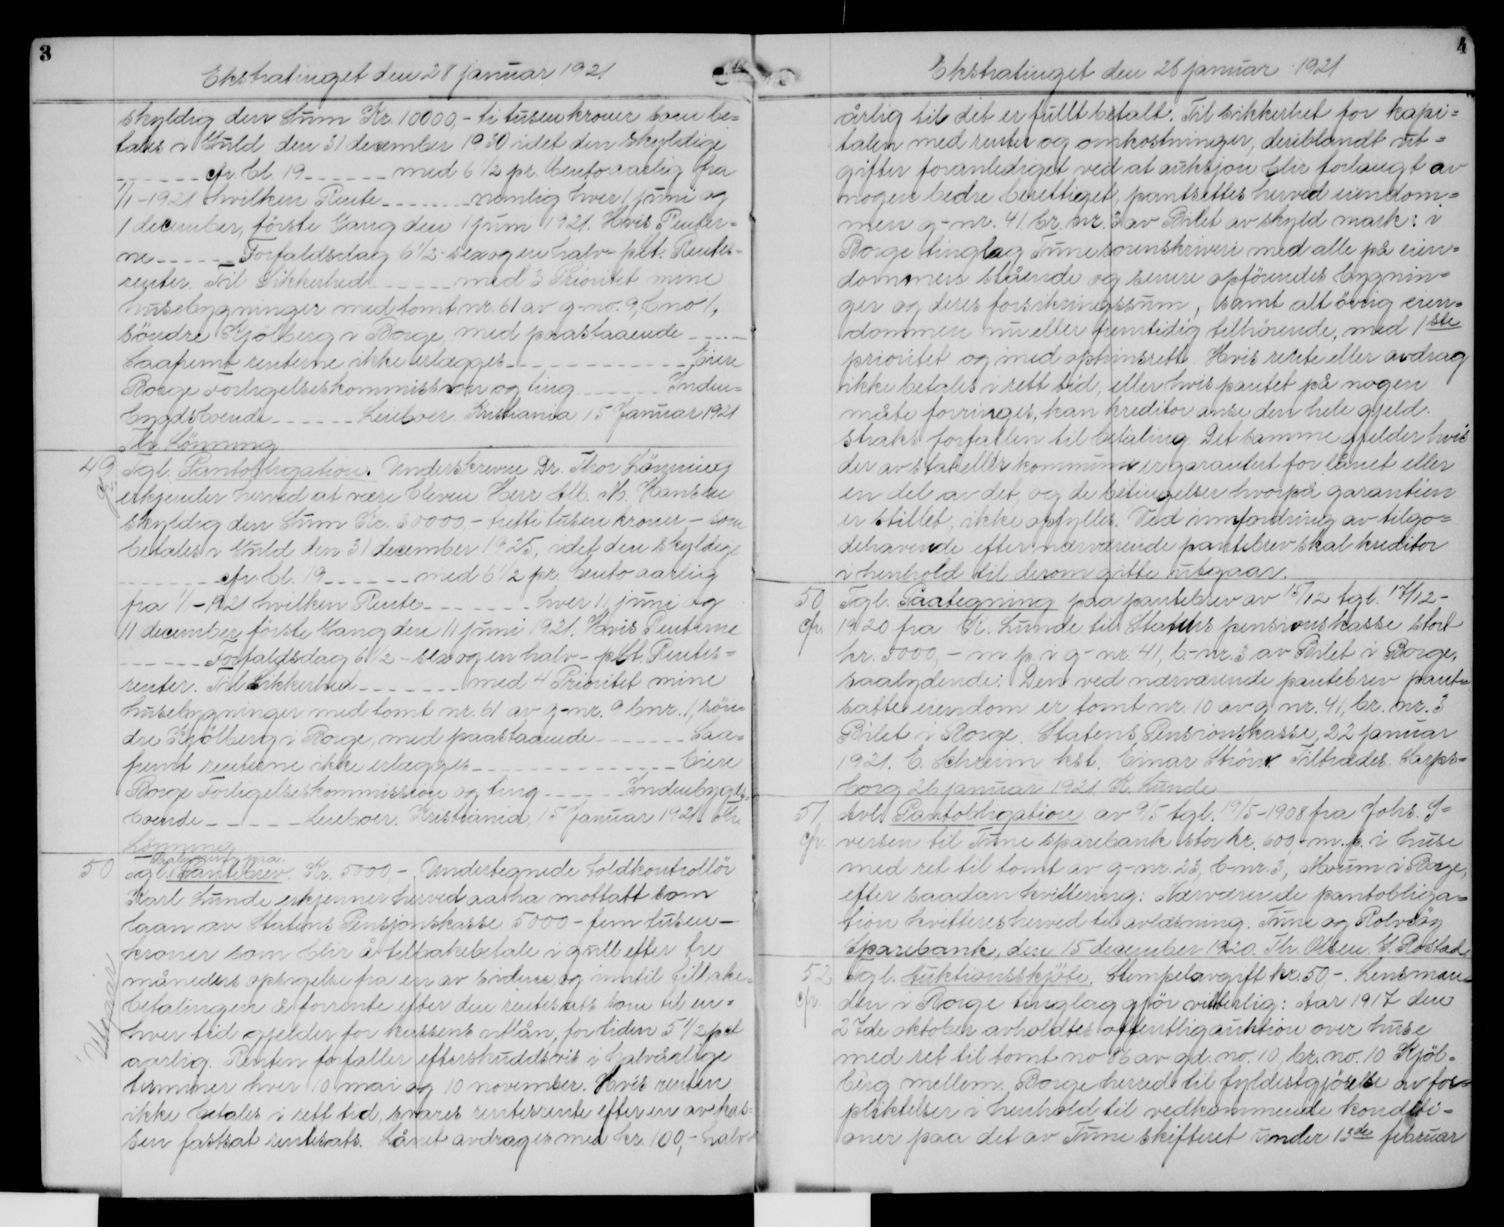 3
Ekstratinget den 28 januar 1921
skyldig den Sum Kr. 10000,- ti tusen kroner som be=
tales i Guld den 31 december 1930 idet den skyldige
_ _ _ _ cfr. bl. 19 _ _ _ _ med 6 1/2 pr. Cento aarlig fra
1/1-1921 hvilken Rente _ _ _ _ nemlig hver 1 juni og
1 december, første Gang den 1 juni 1921. Hvis Renter=
ne _ _ _ _ Forfaldsdag 6 1/2 - sex og en halv - pct. Rentes-
renter. Til Sikkerhed _ _ _ _ med 3 Prioritet mine
husebygninger med tomt nr. 61 av g-no. 9, b.no 1,
søndre Kjølberg i Borge, med paastaaende _ _ _
Saafremt renterne ikke erlægges _ _ _ _ Eiere
Borge Forligelseskommission og ting _ _ _ _ Inden-
bygdsboende _ _ _ _ Leieboer. Kristiania 15 Januar 1921
Thr Lønning
49
Tgl. Pantobligation. Underskrevne Dr. Thor Lønning
erkjender herved at være bleven Herr Alb. M. Hansen
skyldig den Sum Kr. 30000,- tretti tusen kroner,- som
betales i Guld den 31 december 1925, idet den skyldige
_ _ _ _ cfr. bl. 19 _ _ _ _ med 6 1/2 pr. Cento aarlig
fra 1/1-1921 hvilken Rente _ _ _ _ hver 11 juni og
11 december første Gang den 11 juni 1921. Hvis Renterne
_ _ _ _ Forfaldsdag 6 1/2 - sex og en halv - pct. Rentes=
renter. Til Sikkerhed _ _ _ _ med 4 Prioritet mine
husebygninger med tomt nr. 61 av g-nr. 9 bnr. 1, søn=
dre Kjølberg i Borge, med paastaaende _ _ _ _ Saa=
fremt renterne ikke erlægges _ _ _ _ Eiere
Borge Forligelseskommission og ting _ _ _ _ Indenbygds-
boende _ _ _ _ Leieboer. Kristiania, 15 Januar 1921 Thr.
Lønning
50
Tgl. Pantebrev. Kr. 5000,- Undertegnede Toldkontrollør
Karl Lunde erkjenner herved aa ha mottatt som
laan av Statens Pensjonskasse 5000 - fem tusen -
kroner som blir å tilbakebetale i gull efter tre
måneders opsigelse fra en av sidene og inntil tilbake=
betalingen å forrente efter den rentesats som til en=
hver tid gjelder for kassens utlån, for tiden 5 1/2 pct
aarlig. Renten forfaller efterskuddsvis i halvårlige
terminer hver 10 mai og 10 november. Hvis renten
ikke betales i rett tid, svares rentesrente efter en av kas=
sen fastsat rentesats. Lånet avdrages med kr. 100,- halv=
Utgaar
4
Ekstratinget den 28 januar 1921
årlig til det er fullt betalt. Til sikkerhet for kapi=
talen med renter og omkostninger, deriblandt ut=
gifter foranlediget ved at auktion blir forlangt av
nogen bedre berettiget, pantsettes herved eiendom=
men g-nr. 41 br. nr. 3 av Bilet av skyld mark: i
Borge tinglag Tune sorenskriveri med alle på eien=
dommen stående og senere opførendes bygnin=
ger og deres forsikringssum, samt alt øvrig eien=
dommen nu eller fremtidig tilhørende, med 1ste
prioritet og med optrinsrett. Hvis rente eller avdrag
ikke betales i rett tid, eller hvis pantet på nogen
måte forringes, kan kreditor anse den hele gjeld
straks forfallen til betaling. Det samme gjelder hvis
der av stat eller kommune er garantert for lånet eller
en del av det, og de betingelser hvorpå garantien
er stillet, ikke opfylles. Ved innfordring av tilgo=
dehavende efter nærværende pantebrev skal kreditor
i henhold til derom gitte utgaar.
50
cfr.
Tgl. Paategning paa pantebrev av 15/12 tgl. 17/12-
1920 fra K. Lunde til Statens pensionskasse stort
kr. 5000,- m. p. i g-nr. 41, b-nr. 3 av Bilet i Borge,
saalydende: Den ved nærværende pantebrev pant=
satte eiendom er tomt nr. 10 av g. nr. 41, br. nr. 3
Bilet i Borge. Statens Pensionskasse, 22 januar
1921. E. Schreim kst. Einar Tiltrædes. Sarps=
borg 26 januar 1921 K. Lunde
51
cfr.
Avl. Pantobligation av 9/5 tgl. 19/5-1908 fra Johs. I=
versen til Tune sparebank stor kr. 600,- m. p. i huse
med ret til tomt av g-nr. 23, b-nr. 3, Moum i Borge,
efter saadan kvittering: Nærværende pantobliga=
tion kvitteres herved til avlæsning. Tune og Rolvsøy
Sparebank, den 15 desember 1920. Thr. Olsen. G. Rostad.
52
cfr.
Tgl. Auktionsskjøte. Stempelavgift kr. 50-. Lensman=
den i Borge tinglag gjør vitterlig: Aar 1917 den
27de oktober avholdtes offentlig auktion over huse
med ret til tomt no av gd. no. 10, br. no. 10 Kjøl=
berg mellem, Borge herred til fyldestgjørelse av for=
pliktelser i henhold til vedkommende konditi=
oner paa det av Tune skifteret under 13de februar